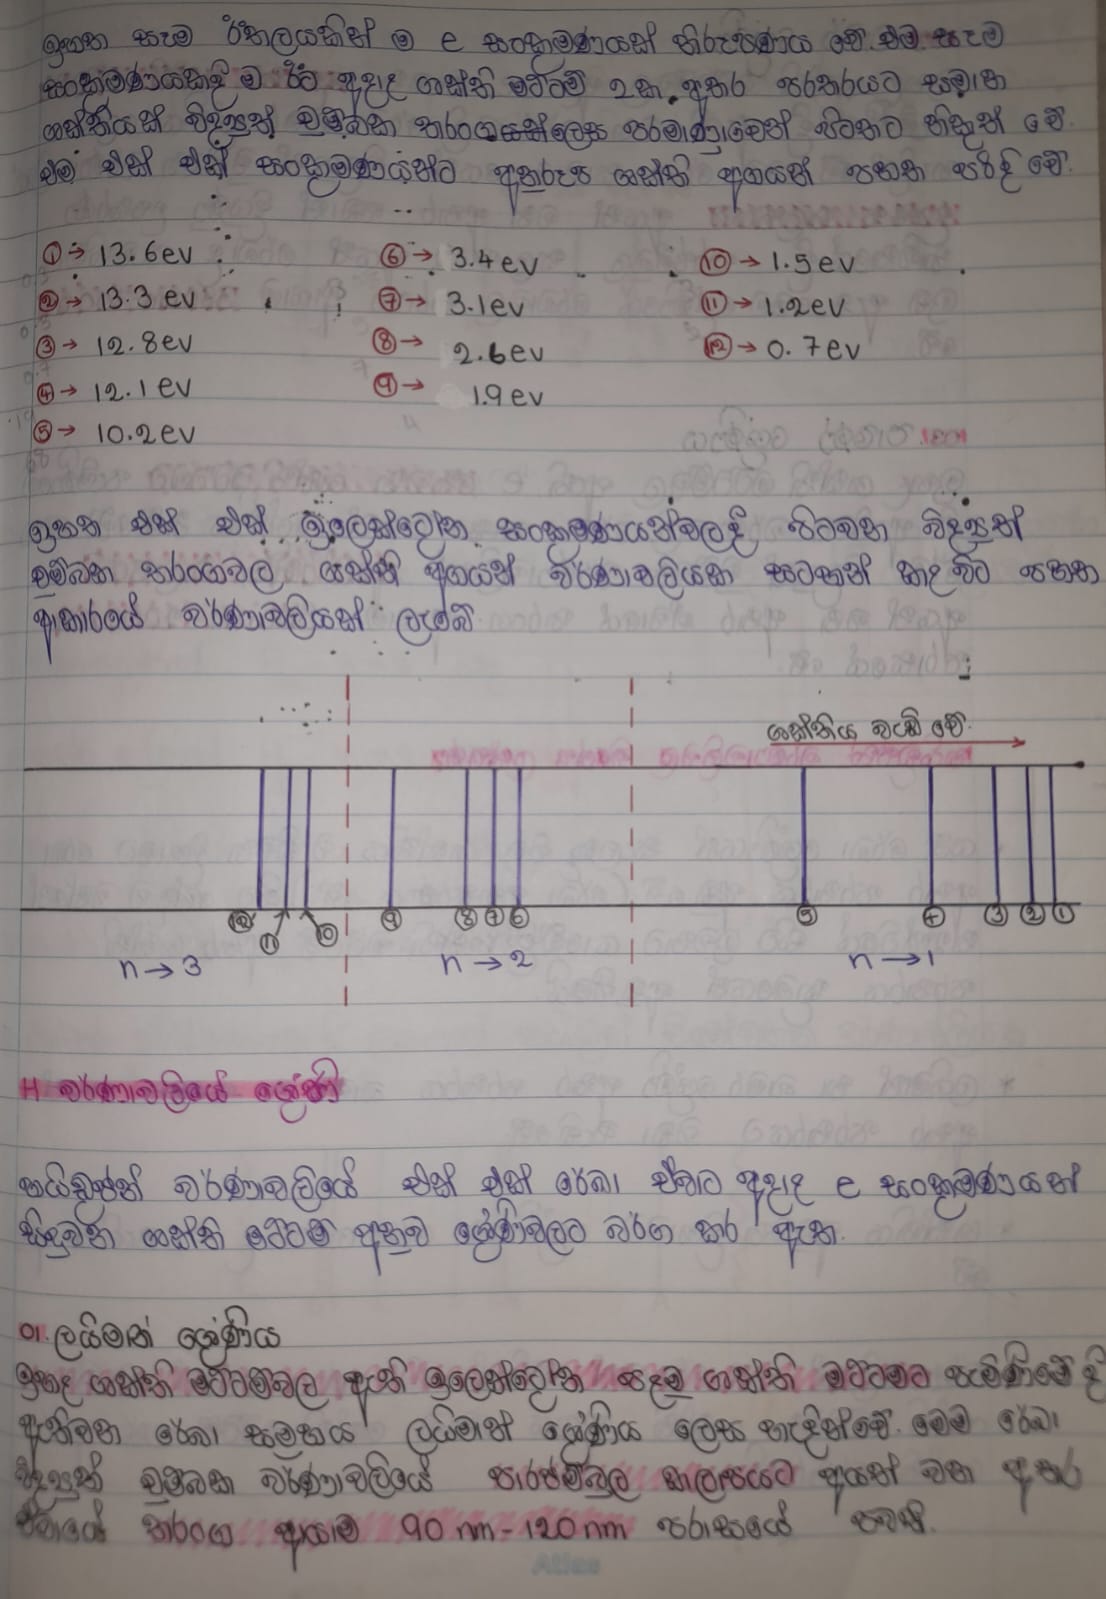 ඉහත සෑම ඊතලයකින් ම e සංක්‍රමණයක් නිරූපණය වේ. එම සෑම
සංක්‍රමණයකදී ම ඊට අදාළ ශක්ති මට්ටම් 2ක අතර පරතරයට සමාන
ශක්තියක් විද්‍යුත් චුම්බක තරංගයක් ලෙස පරමාණුවෙන් පිටතට නිකුත් වේ.
එම එක් එක් සංක්‍රමණයන්ට අනුරූප ශක්ති අගයන් පහත පරිදි වේ.
① → 13.6ev ⑥ → 3.4ev ⑩ → 1.5ev
② → 13.3ev ⑦ → 3.1ev ⑪ → 1.2ev
③ → 12.8ev ⑧ → 2.6ev ⑫ → 0.7ev
④ → 12.1ev ⑨ → 1.9ev
⑤ → 10.2ev
ඉහත එක් එක් ඉලෙක්ට්‍රෝන සංක්‍රමණයන්වලදී පිටවන විද්‍යුත්
චුම්බක තරංගවල ශක්ති අගයන් වර්ණාවලියක සටහන් කළ විට පහත
ආකාරයේ වර්ණාවලියක් ලැබේ.
ශක්තිය වැඩි වේ.
⑫ ⑪ ⑩ ⑨ ⑧ ⑦ ⑥ ⑤ ④ ③ ② ①
n → 3 n → 2 n → 1
H වර්ණාවලියේ ශ්‍රේණි
හයිඩ්‍රජන් වර්ණාවලියේ එක් එක් රේඛා ඒවාට අදාළ e සංක්‍රමණයන්
සිදුවන ශක්ති මට්ටම් අනුව ශ්‍රේණිවලට වර්ග කර ඇත.
01. ලයිමාන් ශ්‍රේණිය
ඉහළ ශක්ති මට්ටම්වල ඇති ඉලෙක්ට්‍රෝන පළමු ශක්ති මට්ටමට පැමිණීමේ දී
ඇතිවන රේඛා සමූහය ලයිමාන් ශ්‍රේණිය ලෙස හැඳින්වේ. මෙම රේඛා
විද්‍යුත් චුම්බක වර්ණාවලියේ පාරජම්බුල කලාපයට අයත් වන අතර
ඒවායේ තරංග ආයාම 90 nm - 120 nm පරාසයේ පවතී.
Atlas